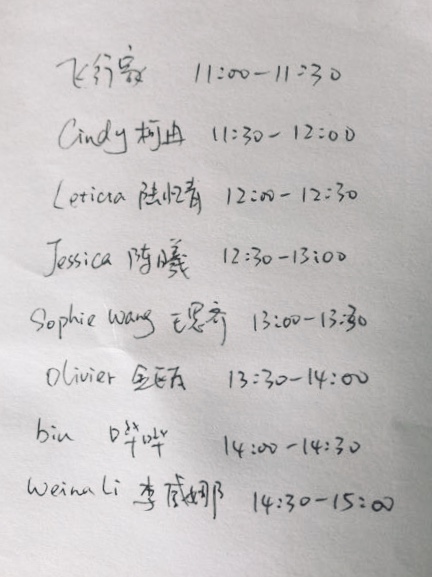 飞行家 11:00-11:30
Cindy 柯冉 11:30-12:00
Leticia 陆忆青 12:00-12:30
Jessica 陈曦 12:30-13:00
Sophie Wang 王思齐 13:00-13:30
Olivier 13:30-14:00
bin 哗哗 14:00-14:30
Weina Li 李威娜 14:30-15:00